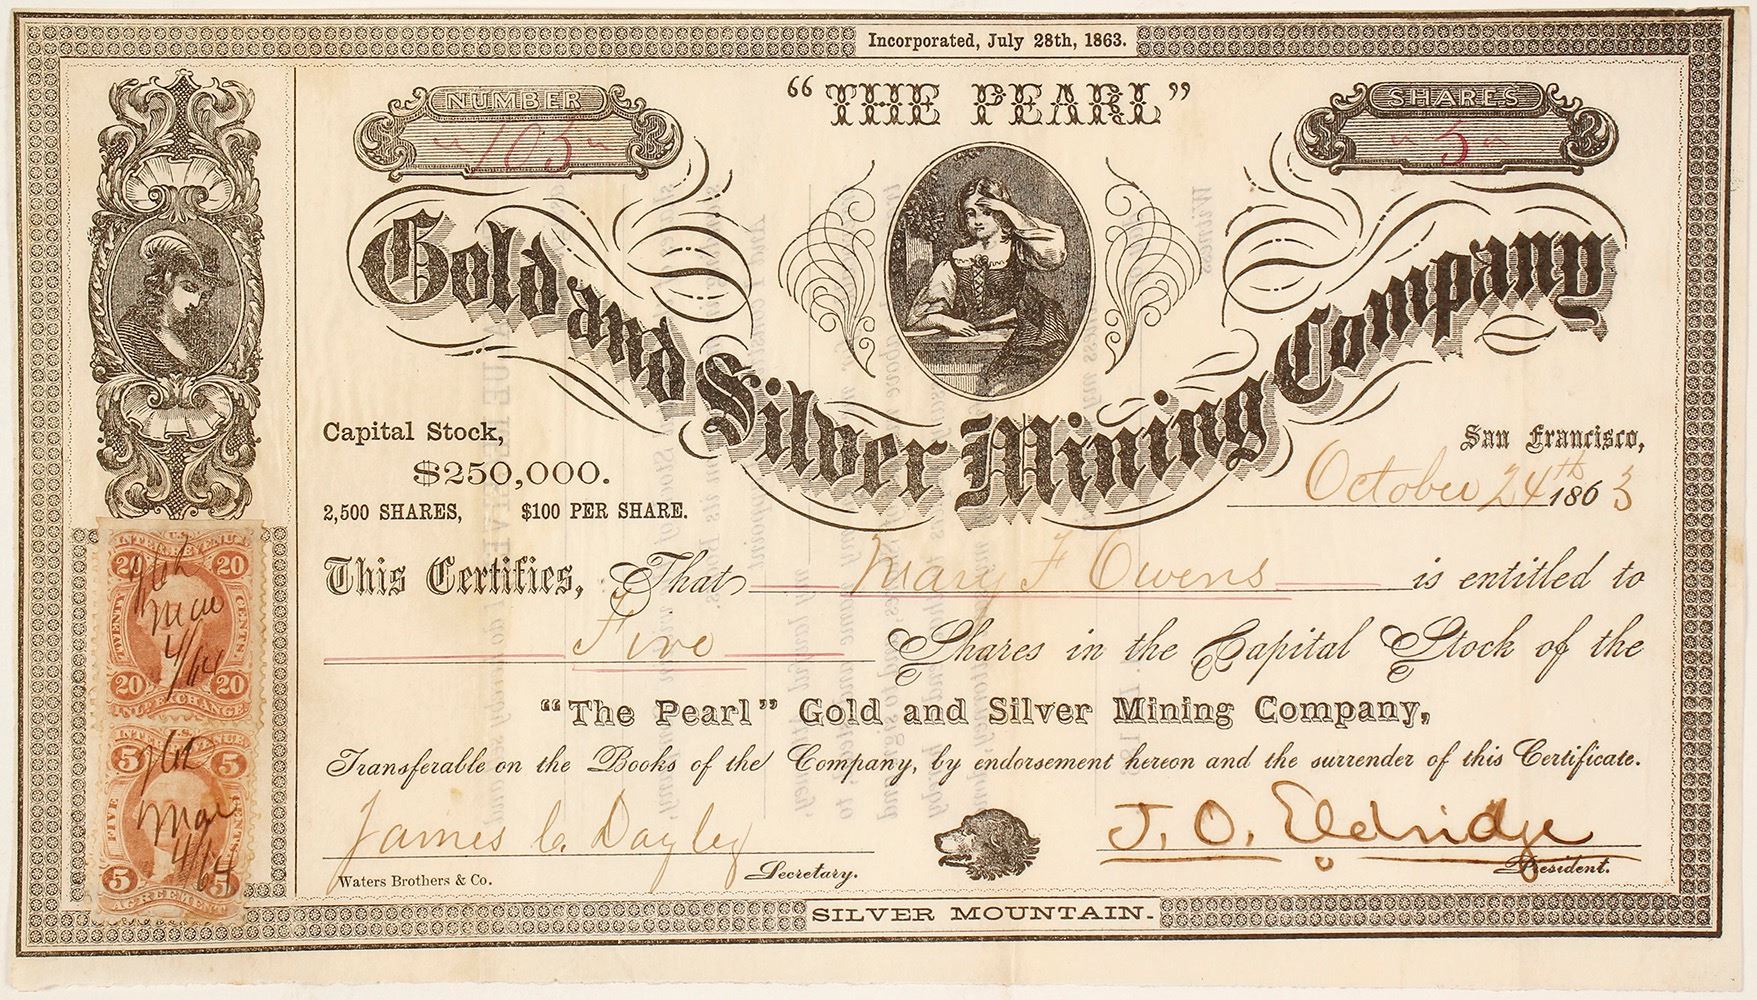 Incorporated, July 28th, 1863.
"THE PEARL"
NUMBER
" 105 "
SHARES
" 5 "
Gold and Silver Mining Company
Capital Stock,
$250,000.
2,500 SHARES, $100 PER SHARE.
San Francisco,
October 24th 1863
This Certifies, That Mary F Owens is entitled to
Five Shares in the Capital Stock of the
"The Pearl" Gold and Silver Mining Company,
Transferable on the Books of the Company, by endorsement hereon and the surrender of this Certificate.
James C. Dayley
Secretary.
J. O. Eldridge
President.
Waters Brothers & Co.
SILVER MOUNTAIN.
INTER. REVENUE
20 20
TWENTY CENTS
Mar
4/64
20 20
INL. EXCHANGE
INTER. REVENUE
5 5
FIVE CENTS
Mar
4/64
5 5
AGREEMENT